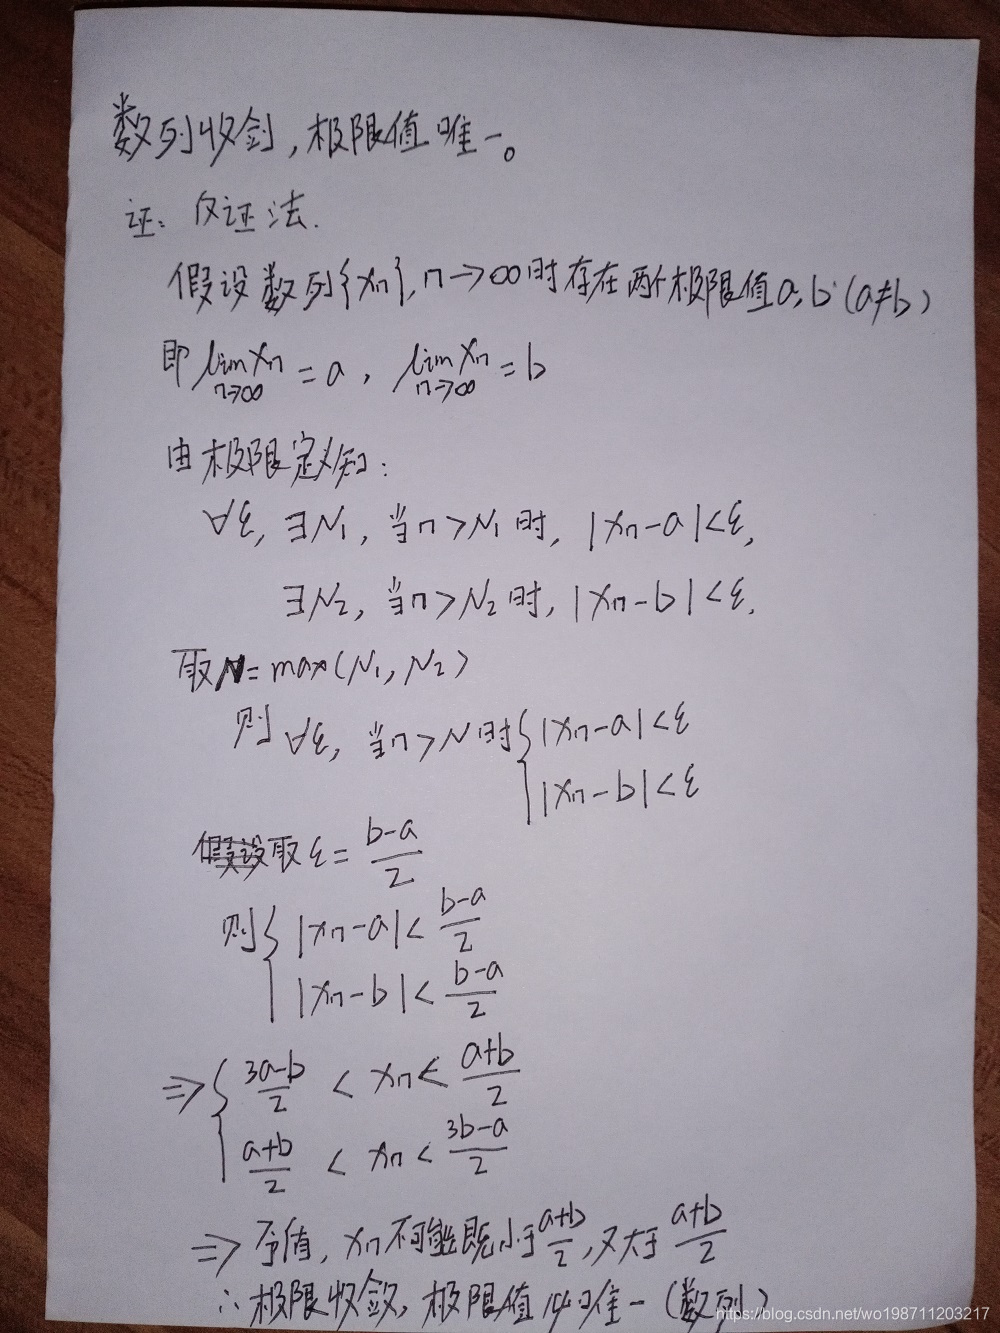 数列收敛，极限值唯一。
证：反证法.
假设数列{xn}, n→∞时存在两个极限值a,b (a≠b)
即 lim xn = a , lim xn = b
n→∞ n→∞
由极限定义知:
∀ε, ∃N1, 当n>N1时, |xn-a|<ε,
∃N2, 当n>N2时, |xn-b|<ε,
取N=max(N1, N2)
则∀ε, 当n>N时{|xn-a|<ε
|xn-b|<ε
取ε= b-a/2
则{|xn-a|< b-a/2
|xn-b|< b-a/2
⇒{3a-b/2 < xn < a+b/2
a+b/2 < xn < 3b-a/2
⇒矛盾, xn不可能既小于 a+b/2, 又大于 a+b/2
∴极限收敛, 极限值必唯一 (数列)
https://blog.csdn.net/wo198711203217